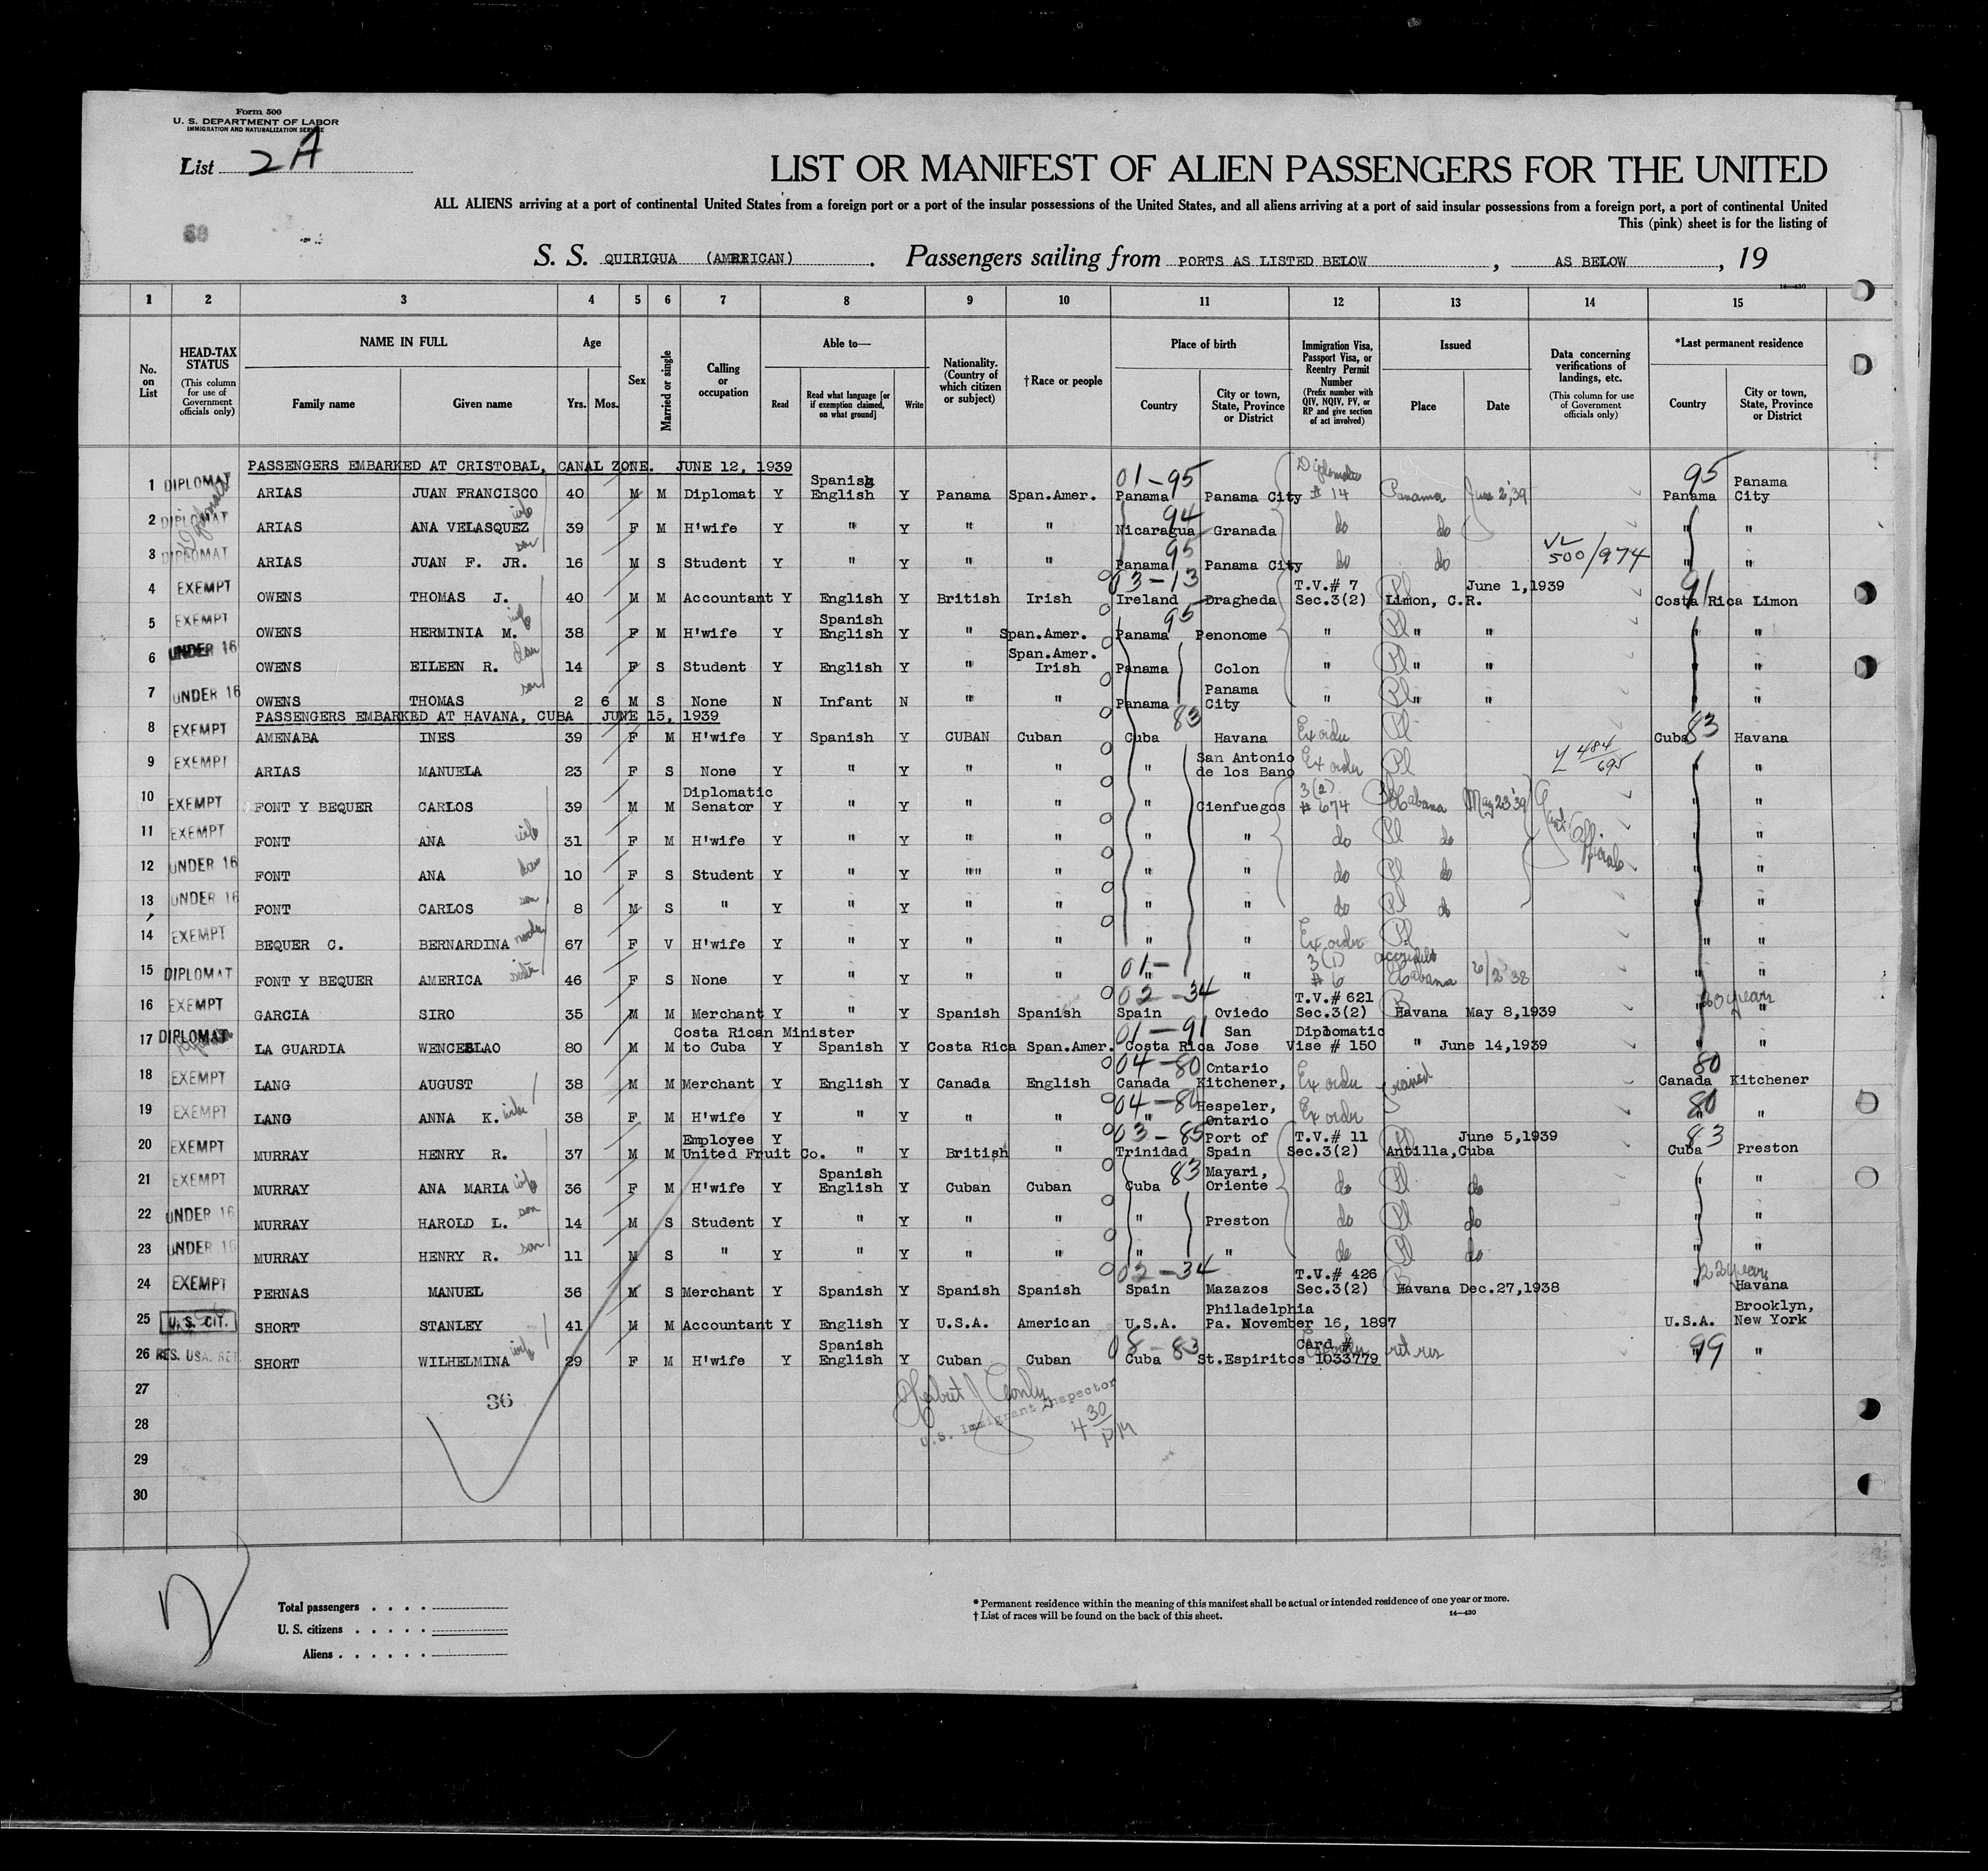 Form 500
U. S. DEPARTMENT OF LABOR
IMMIGRATION AND NATURALIZATION SERVICE
List 2A
LIST OR MANIFEST OF ALIEN PASSENGERS FOR THE UNITED
ALL ALIENS arriving at a port of continental United States from a foreign port or a port of the insular possessions of the United States, and all aliens arriving at a port of said insular possessions from a foreign port, a port of continental United
This (pink) sheet is for the listing of
S. S. QUIRIGUA (AMERICAN). Passengers sailing from PORTS AS LISTED BELOW, AS BELOW, 19
14—430
1 2 3 4 5 6 7 8 9 10 11 12 13 14 15
No. on List
HEAD-TAX STATUS (This column for use of Government officials only)
NAME IN FULL Family name Given name
Age Yrs. Mos.
Sex
Married or single
Calling or occupation
Able to— Read Read what language [or if exemption claimed, on what ground] Write
Nationality. (Country of which citizen or subject)
†Race or people
Place of birth Country City or town, State, Province or District
Immigration Visa, Passport Visa, or Reentry Permit Number (Prefix number with QIV, NQIV, PV, or RP and give section of act involved)
Issued Place Date
Data concerning verifications of landings, etc. (This column for use of Government officials only)
*Last permanent residence Country City or town, State, Province or District
PASSENGERS EMBARKED AT CRISTOBAL, CANAL ZONE. JUNE 12, 1939
1 DIPLOMAT ARIAS JUAN FRANCISCO 40 M M Diplomat Y Spanish English Y Panama Span.Amer. 01-95 Panama Panama City Diplomatic # 14 Panama June 2, 39 95 Panama Panama City
2 DIPLOMAT ARIAS ANA VELASQUEZ wife 39 F M H'wife Y " Y " " 94 Nicaragua Granada do do " "
3 DIPLOMAT ARIAS JUAN F. JR. son 16 M S Student Y " Y " " 95 Panama Panama City do do VL 500/974 " "
4 EXEMPT OWENS THOMAS J. 40 M M Accountant Y English Y British Irish 03-13 Ireland Dragheda T.V.# 7 Sec.3(2) Pl Limon, C.R. June 1,1939 91 Costa Rica Limon
5 EXEMPT OWENS HERMINIA M. wife 38 F M H'wife Y Spanish English Y " Span.Amer. 95 Panama Penonome " Pl " " " "
6 UNDER 16 OWENS EILEEN R. dau 14 F S Student Y English Y " Span.Amer. Irish Panama Colon " Pl " " " "
7 UNDER 16 OWENS THOMAS son 2 6 M S None N Infant N " " Panama Panama City " Pl " " " "
PASSENGERS EMBARKED AT HAVANA, CUBA JUNE 15, 1939
8 EXEMPT AMENABA INES 39 F M H'wife Y Spanish Y CUBAN Cuban 83 Cuba Havana Ex order Pl Cuba 83 Havana
9 EXEMPT ARIAS MANUELA 23 F S None Y " Y " " " San Antonio de los Bano Ex order Pl 484/695 " "
10 EXEMPT FONT Y BEQUER CARLOS 39 M M Diplomatic Senator Y " Y " " " Cienfuegos 3(2) # 674 Habana May 23 '39 Officials " "
11 EXEMPT FONT ANA wife 31 F M H'wife Y " Y " " " " do Pl do " "
12 UNDER 16 FONT ANA dau 10 F S Student Y " Y "" " " " do Pl do " "
13 UNDER 16 FONT CARLOS son 8 M S " Y " Y " " " " do Pl do " "
14 EXEMPT BEQUER C. BERNARDINA mother 67 F V H'wife Y " Y " " " " Ex order Pl " "
15 DIPLOMAT FONT Y BEQUER AMERICA sister 46 F S None Y " Y " " 01- " " 3(1) # 6 Habana 6/2 38 " "
16 EXEMPT GARCIA SIRO 35 M M Merchant Y " Y Spanish Spanish 02-34 Spain Oviedo T.V.# 621 Sec.3(2) Havana May 8,1939 20 years " "
17 DIPLOMAT LA GUARDIA WENCESLAO 80 M M Costa Rican Minister to Cuba Y Spanish Y Costa Rica Span.Amer. 01-91 Costa Rica San Jose Diplomatic Vise # 150 " June 14,1939 " "
18 EXEMPT LANG AUGUST 38 M M Merchant Y English Y Canada English 04-80 Canada Ontario Kitchener, Ex order 80 Canada Kitchener
19 EXEMPT LANG ANNA K. wife 38 F M H'wife Y " Y " " 04-80 " Hespeler, Ontario Ex order 80 " "
20 EXEMPT MURRAY HENRY R. 37 M M Employee United Fruit Co. Y " Y British " 03-85 Trinidad Port of Spain T.V.# 11 Sec.3(2) Pl Antilla,Cuba June 5,1939 83 Cuba Preston
21 EXEMPT MURRAY ANA MARIA wife 36 F M H'wife Y Spanish English Y Cuban Cuban 83 Cuba Mayari, Oriente do Pl do " "
22 UNDER 16 MURRAY HAROLD L. son 14 M S Student Y " Y " " " Preston do Pl do " "
23 UNDER 16 MURRAY HENRY R. son 11 M S " Y " Y " " " " do Pl do " "
24 EXEMPT PERNAS MANUEL 36 M S Merchant Y Spanish Y Spanish Spanish 02-34 Spain Mazazos T.V.# 426 Sec.3(2) Havana Dec.27,1938 22 years " Havana
25 U. S. CIT. SHORT STANLEY 41 M M Accountant Y English Y U.S.A. American U.S.A. Philadelphia Pa. November 16, 1897 U.S.A. Brooklyn, New York
26 RES. USA. RET. SHORT WILHELMINA wife 29 F M H'wife Y Spanish English Y Cuban Cuban 08-83 Cuba St.Espiritos Card # 1033779 ret res 99 " "
27
28
29
30
36
U.S. Immigrant Inspector
4 30 PM
Total passengers
U. S. citizens
Aliens
* Permanent residence within the meaning of this manifest shall be actual or intended residence of one year or more.
† List of races will be found on the back of this sheet.
14—430